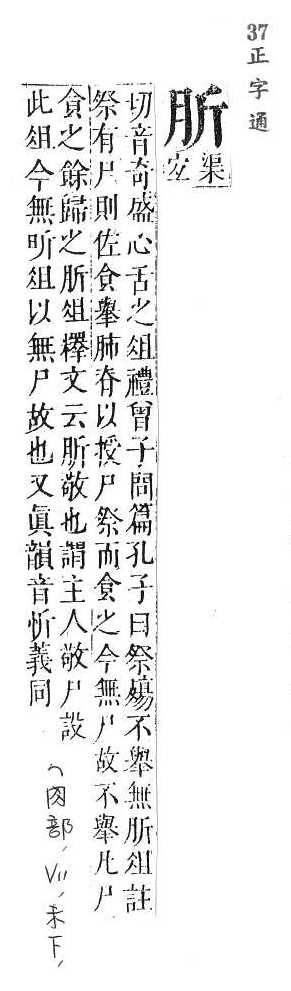 37正字通
肵渠宜
切音奇盛心舌之俎禮曾子問篇孔子曰祭殤不舉無肵俎註
祭有尸則佐食舉肺脊以授尸祭而食之今無尸故不舉凡尸
食之餘歸之肵俎釋文云肵敬也謂主人敬尸設
此俎今無肵俎以無尸故也又眞韻音忻義同
(肉部, VII, 未下,